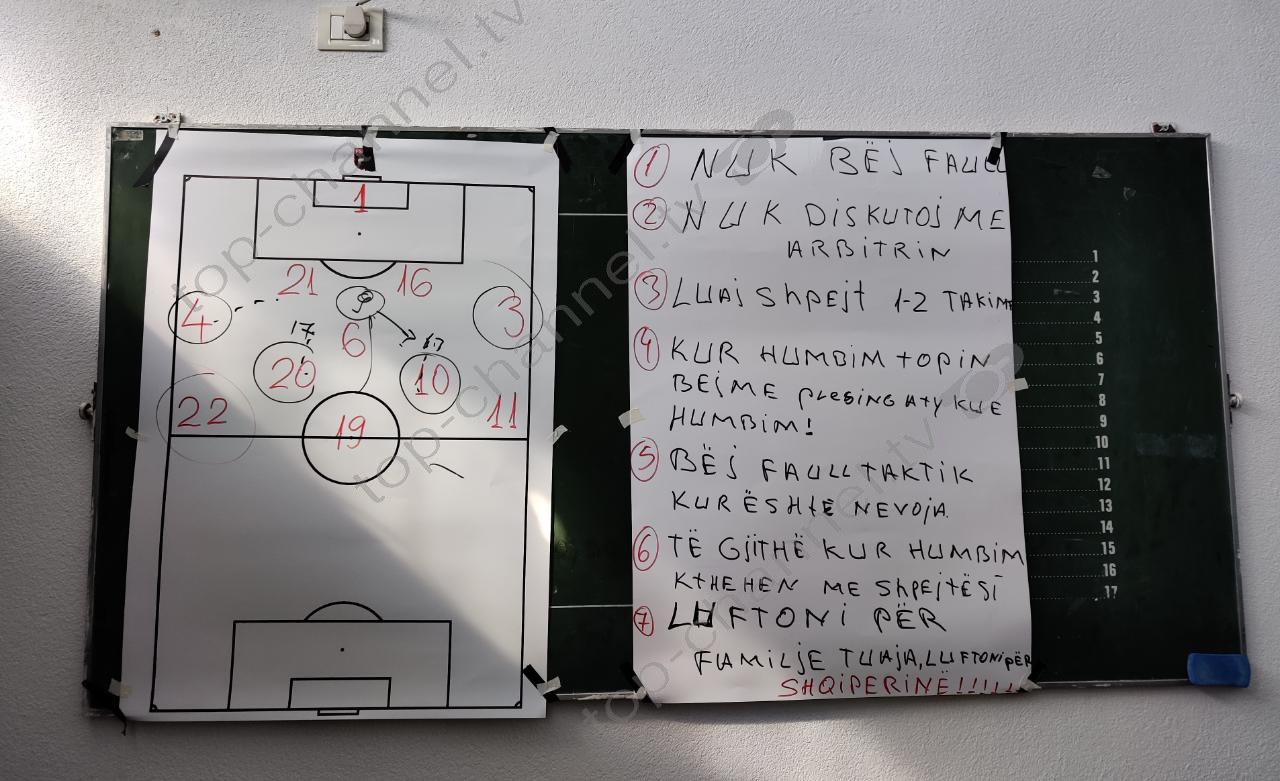 1
21 16
4 9 3
17 17
6
20 10
22 11
19
1 NUK BËJ FAULL
2 NUK DISKUTOJ ME
ARBITRIN
3 LUAJ ShpEJt 1-2 TAKIME
4 KUR HUMBIM tOPIN
BEJME pREsING AtY KUR
HUMBIM!
5 BËJ FAULL TAKTIK
KUR ËSHtË NEVOJA
6 TË GJITHË KUR HUMBIM
KtHEHEN ME ShpEJtËSÏ
7 LUFTONI PËR
FAMILJE TUAJA, LUFTONI pËR
SHQIPERINË!!!!!!
1
2
3
4
5
6
7
8
9
10
11
12
13
14
15
16
17
top-channel.tv
top-channel.tv
top-channel.tv
top-channel.tv